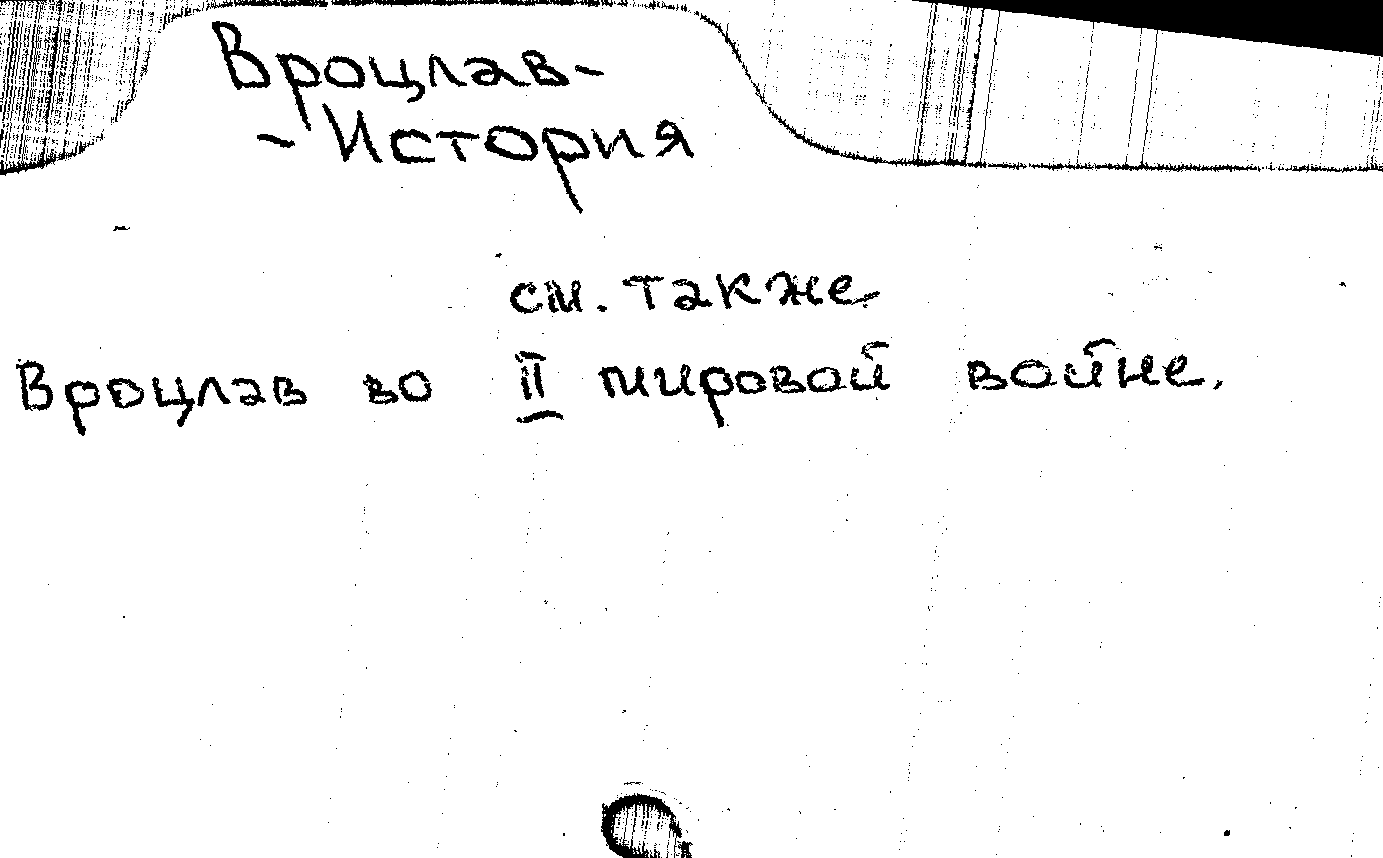 Вроцлав-
- История
см. также
Вроцлав во II мировой войне.